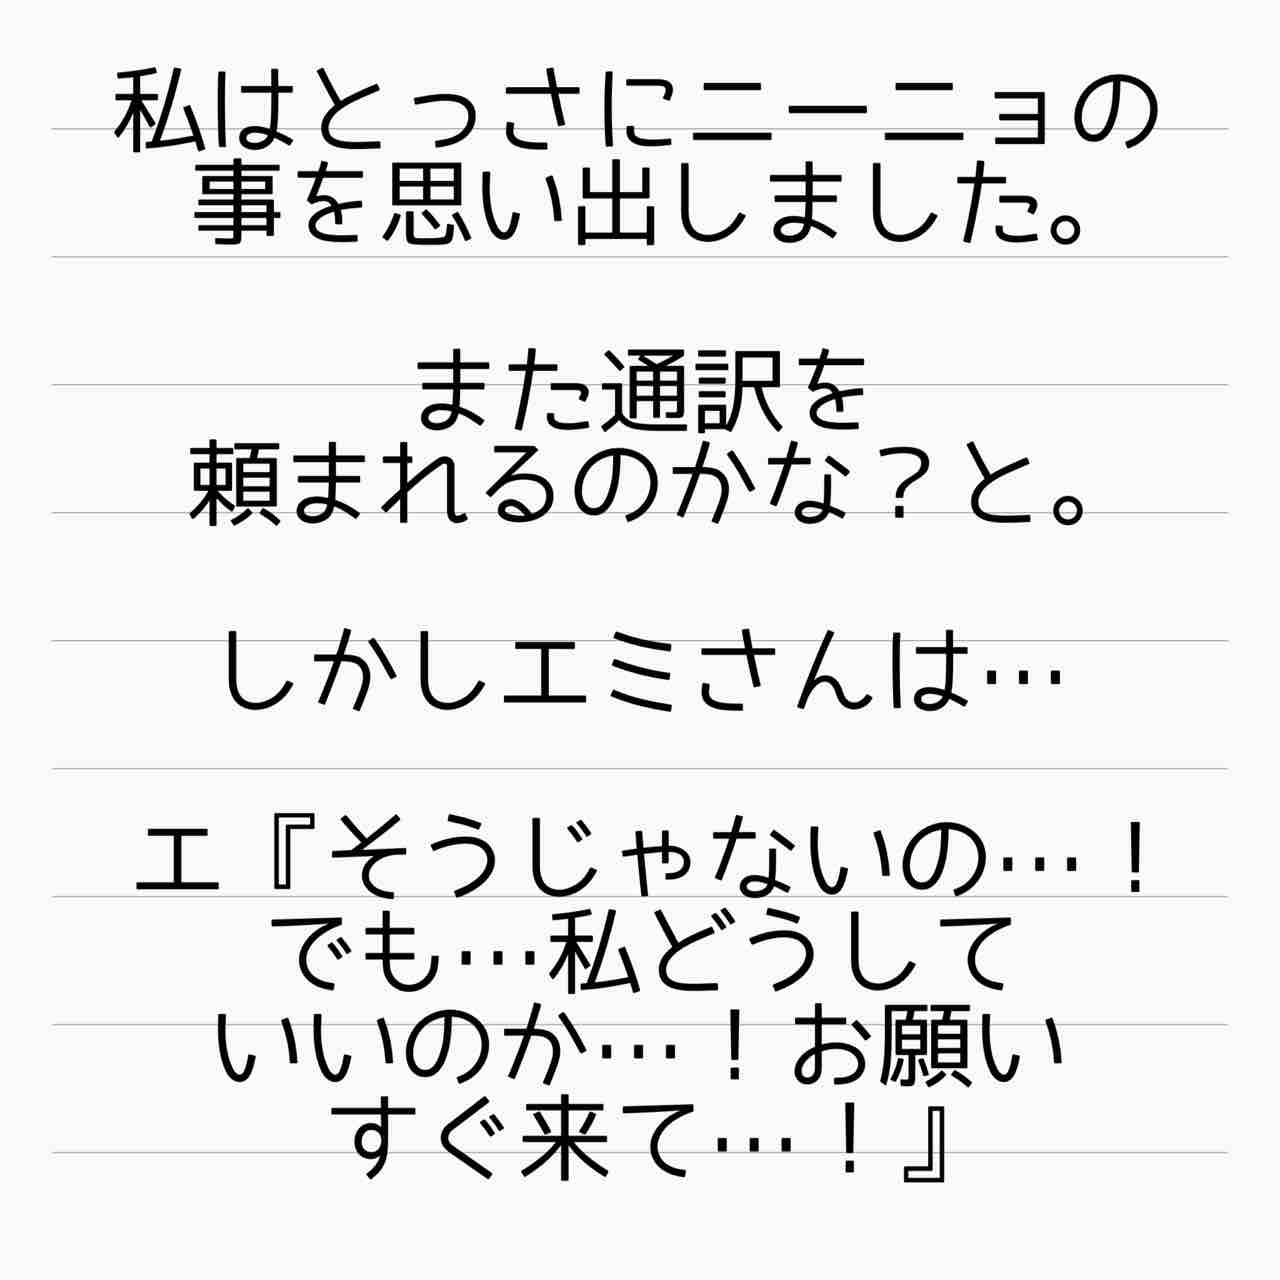 私はとっさにニーニョの
事を思い出しました。
また通訳を
頼まれるのかな？と。
しかしエミさんは…
エ『そうじゃないの…！
でも…私どうして
いいのか…！お願い
すぐ来て…！』